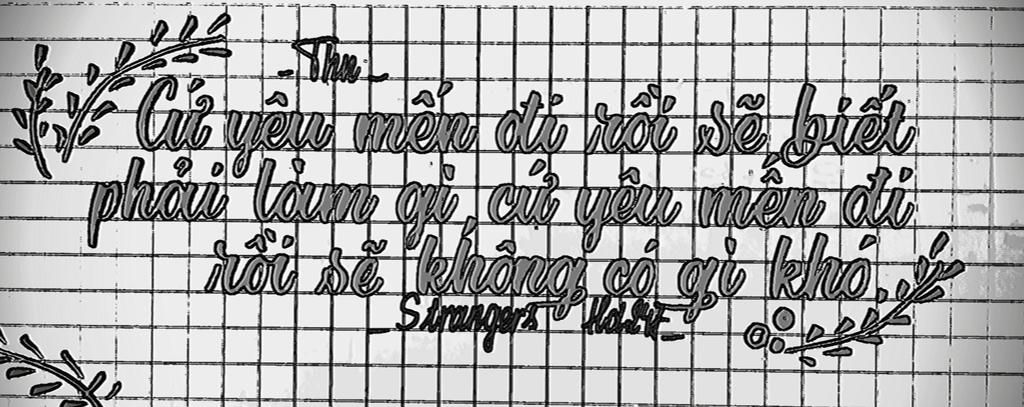 Thu
Cứ yêu mến đi rồi sẽ biết
phải làm gì, cứ yêu mến đi
rồi sẽ không có gì khó.
Strangers